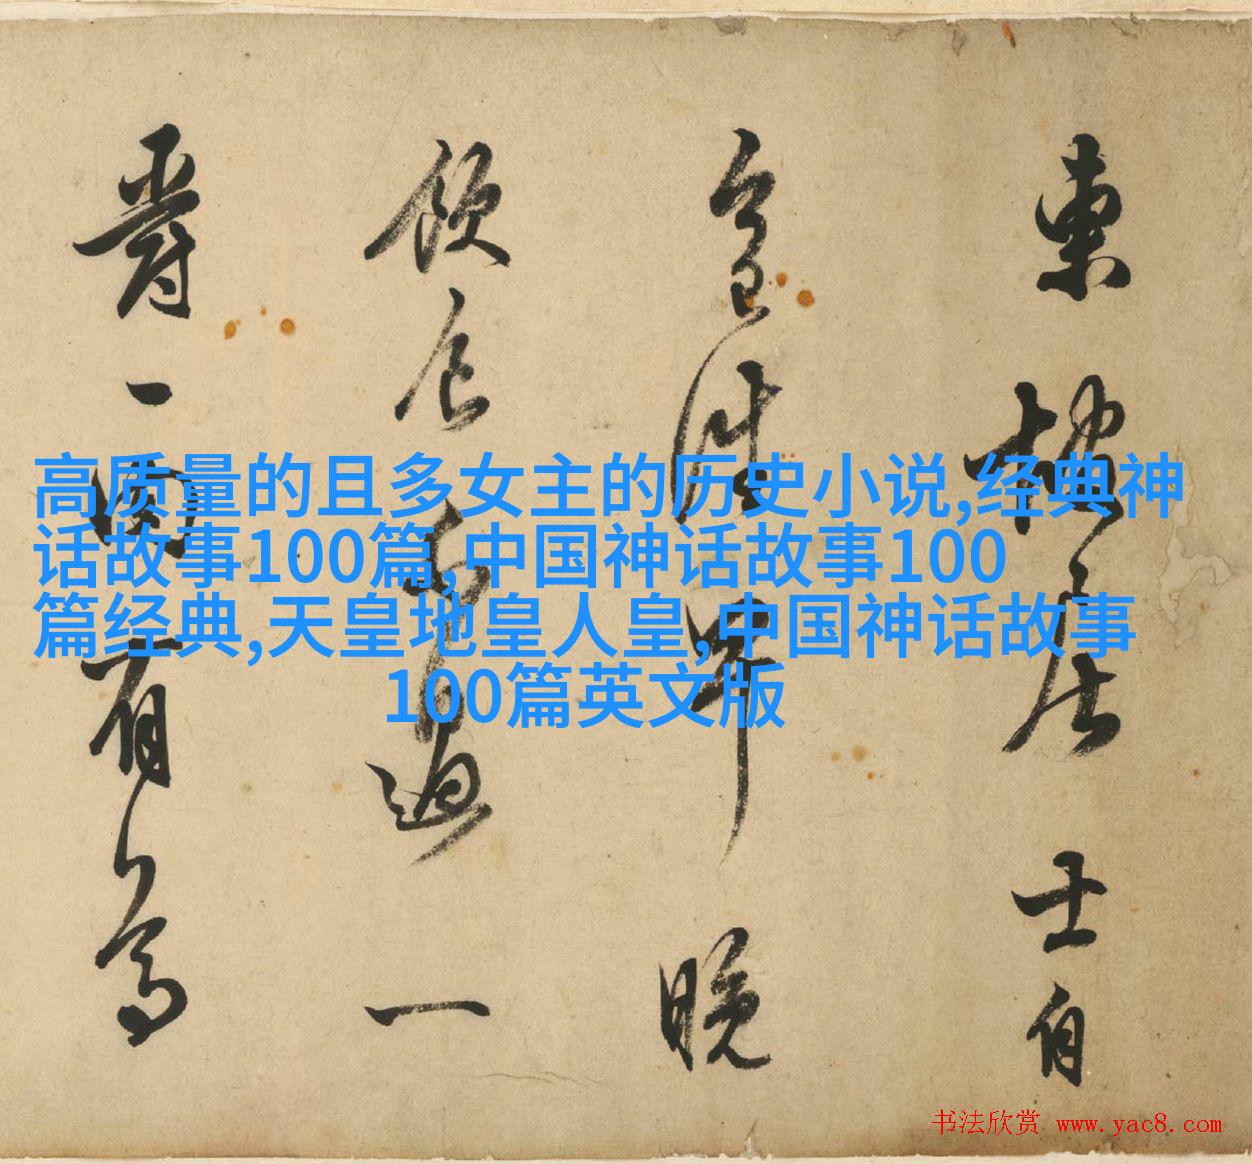 高质量的且多女主的历史小说,经典神
话故事100篇,中国神话故事100
篇经典,天皇地皇人皇,中国神话故事
100篇英文版
東坡居士自
今日往早晚
飲食不過一
爵一肉有
书法欣赏 www.yac8.com